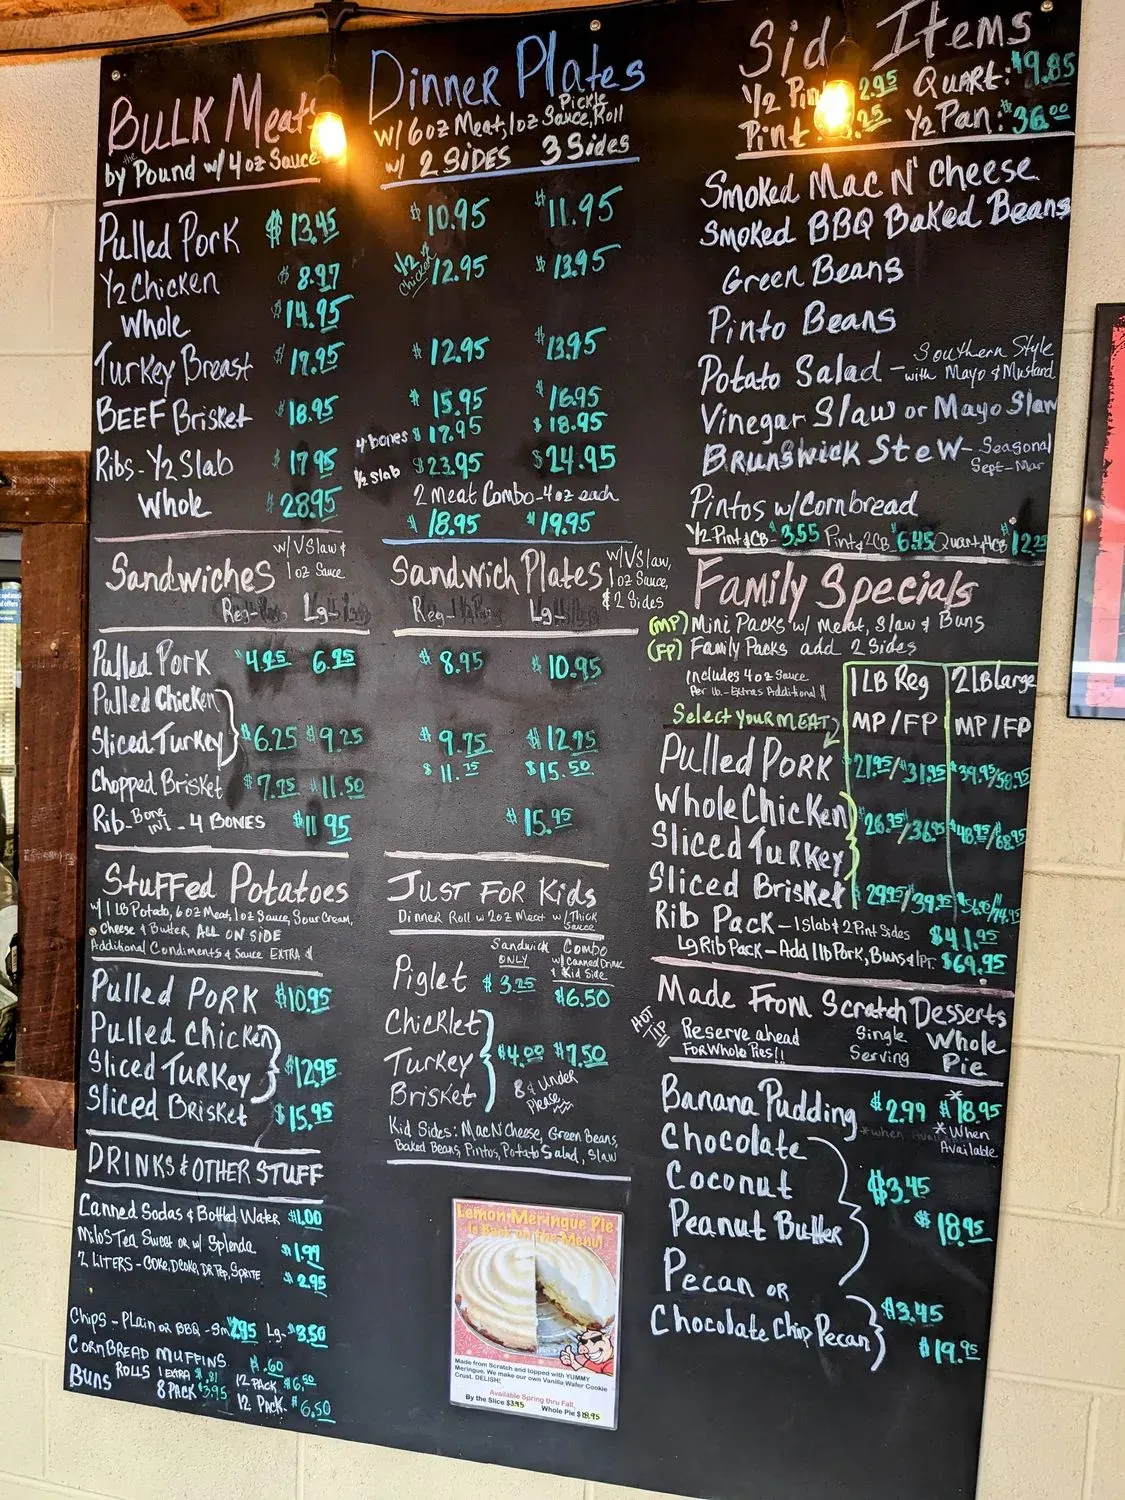 BULK Meats
by the Pound w/ 4 oz Sauce
Pulled Pork $13.45
1/2 Chicken $8.97
Whole $14.95
Turkey Breast $17.95
BEEF Brisket $18.95
Ribs - 1/2 Slab $17.95
Whole $28.95
Dinner Plates
w/ 6 oz Meat, 1 oz Sauce, Pickle, Roll
w/ 2 SIDES 3 Sides
$10.95 $11.95
1/2 Chicken $12.95 $13.95
$12.95 $13.95
$15.95 $16.95
4 bones $17.95 $18.95
1/2 slab $23.95 $24.95
2 meat Combo - 4 oz each
$18.95 $19.95
Sid Items
1/2 Pint 2.95 QUART: $9.85
Pint 1/2 Pan: $36.00
Smoked Mac N' Cheese
Smoked BBQ Baked Beans
Green Beans
Pinto Beans
Potato Salad - Southern Style with Mayo & Mustard
Vinegar Slaw or Mayo Slaw
BRunswick Stew - Seasonal Sept-Mar
Pintos w/ Cornbread
1/2 Pint & CB - $3.55 Pint & 2CB 6.45 Quart & 4CB $12.25
Sandwiches w/ V Slaw & 1 oz Sauce
Reg Lg
Pulled Pork $4.95 6.95
Pulled Chicken
Sliced Turkey $6.25 $9.25
Chopped Brisket $7.75 $11.50
Rib - Bone In! - 4 BONES $11.95
Sandwich Plates w/ V Slaw, 1 oz Sauce, & 2 Sides
Reg Lg
$8.95 $10.95
$9.75 $12.75
$11.75 $15.50
$15.95
Family Specials
(MP) Mini Packs w/ Meat, Slaw & Buns
(FP) Family Packs add 2 Sides
Includes 4 oz Sauce Per lb. - Extras Additional $
1 LB Reg 2 LB Large
Select Your MEAT MP / FP MP / FP
Pulled Pork $21.95/$31.95 $39.95/58.95
Whole Chicken
Sliced Turkey $26.95/36.95 $48.95/68.95
Sliced Brisket $29.95/39.95 $56.95/74.95
Rib Pack - 1 Slab & 2 Pint Sides $41.95
Lg Rib Pack - Add 1 lb Pork, Buns & 1 PT. $69.95
Stuffed Potatoes
w/ 1 LB Potato, 6 oz Meat, 1 oz Sauce, Sour Cream,
Cheese & Butter, ALL ON SIDE
Additional Condiments & Sauce EXTRA $
Pulled Pork $10.95
Pulled Chicken
Sliced Turkey $12.95
Sliced Brisket $15.95
Just For Kids
Dinner Roll w 2 oz Meat w/ Thick Sauce
Sandwich ONLY Combo w/ Canned Drink & Kid Side
Piglet $3.25 $6.50
Chicklet
Turkey $4.00 $7.50
Brisket
8 & Under Please
Kid Sides: Mac N Cheese, Green Beans,
Baked Beans, Pintos, Potato Salad, Slaw
Made From Scratch Desserts
HOT TIP Reserve ahead For Whole Pies!! Single Serving Whole Pie
Banana Pudding $2.99 *$18.95
*When Available
Chocolate
Coconut $3.45
Peanut Butter $18.95
Pecan or $3.45
Chocolate Chip Pecan $19.95
DRINKS & OTHER STUFF
Canned Sodas & Bottled Water $1.00
Milos Tea Sweet or w/ Splenda $1.99
2 LITERS - COKE, D.COKE, DR Pep, Sprite $2.95
Chips - Plain or BBQ - Sm 2.95 Lg - $3.50
Cornbread Muffins $.60 12 PACK $6.50
Buns ROLLS 1 EXTRA $.81
8 PACK $3.95 12 Pack $6.50
Lemon Meringue Pie
Is Back on the Menu!
Made from Scratch and topped with YUMMY
Meringue. We make our own Vanilla Wafer Cookie
Crust. DELISH!
Available Spring thru Fall.
By the Slice $3.45 Whole Pie $18.95